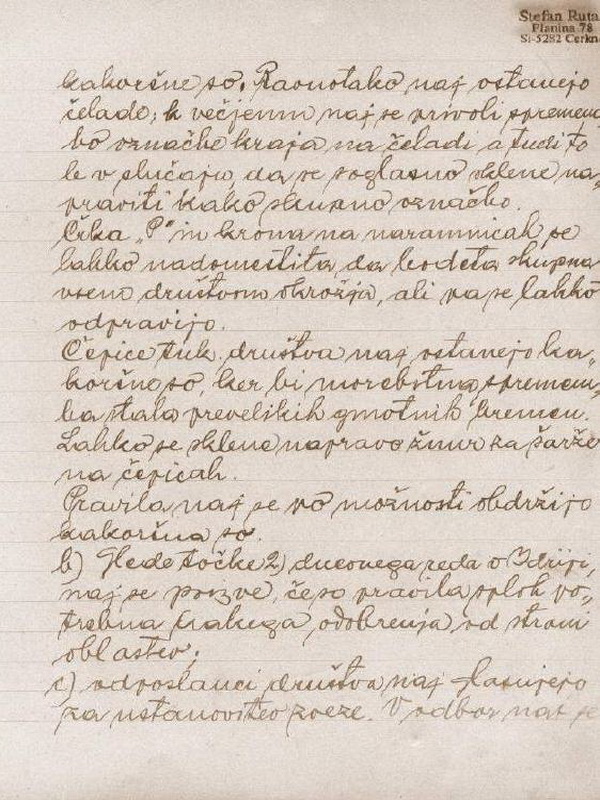 Stefan Ruta
Planina 78
SI-5282 Cerkn
kakoršne so. Ravnotako naj ostanejo
čelade; k večjemu naj se privoli spremem
ba označbe kraja na čeladi a tudi to
le v slučaju, da se soglasno sklene na„
praviti kako skupno označbo.
Črka „P" in krona na naramnicah se
lahko nadomestita, da bodeta skupna
vsem društvom okrožja, ali pa se lahko
odpravijo.
Čepice tuk. društva naj ostanejo ka„
koršne so, ker bi morebitna spremem„
ba stala prevelikih gmotnih bremen.
Lahko se sklene napravo žnur za šarže
na čepicah.
Pravila naj se po možnosti obdržijo
kakoršna so.
b) Glede točke 2) dnevnega reda v Idriji,
naj se poizve, če so pravila sploh po„
trebna kakega odobrenja od strani
oblastev;
c) odposlanci društva naj glasujejo
za ustanovitev zveze. V odbor naj se